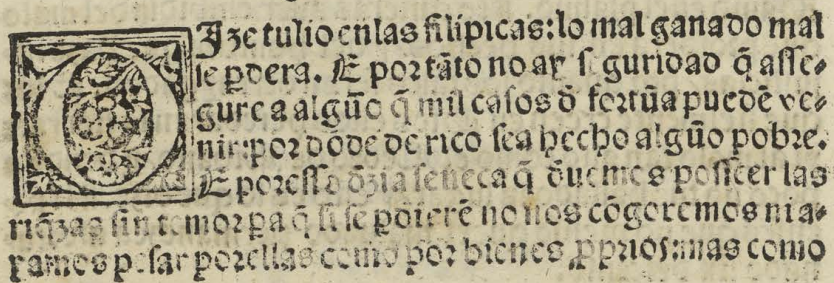 DIze tulio enlas filipicas:lo mal ganado mal
se ꝑdera. E por tãto no ay seguridad q̃ asse-
gure a algũo q̃ mil casos d̃ fortũa puedẽ ve-
nir:por dõde de rico sea hecho algũo pobre.
E poresso dz̃ia seneca q̃ duemos posseer las
riq̃zas sin temor pa q̃ si se ꝑdierẽ no nos cõgoremos ni a-
yamos pesar porellas como por bienes ꝓprios:mas como